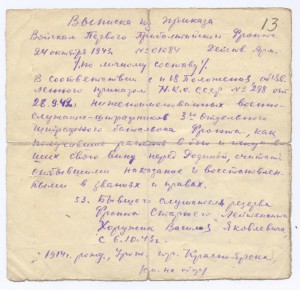 13
Выписка из приказа
Войскам Первого Прибалтийского Фронта
24 октября 1943г. № 01084 Действ. Арм.
/по личному составу/
В соответствии с п. 18 Положения, объявл.
ленного приказом Н.К.О. СССР № 298 от
28.9.42г. нижепоименованных военно-
служащих-штрафников 3го Отдельного
штрафного батальона Фронта, как
получивших ранения в бою и искупив-
ших свою вину перед Родиной, считать
отбывшими наказание и восстановлен-
ными в званиях и правах.
53. Бывшего слушателя резерва
Фронта Старшего Лейтенанта
Хоружик Василий Яковлевича
с 6.10.43г.
1914г. рожд., урож. гор.
/см. на обор/